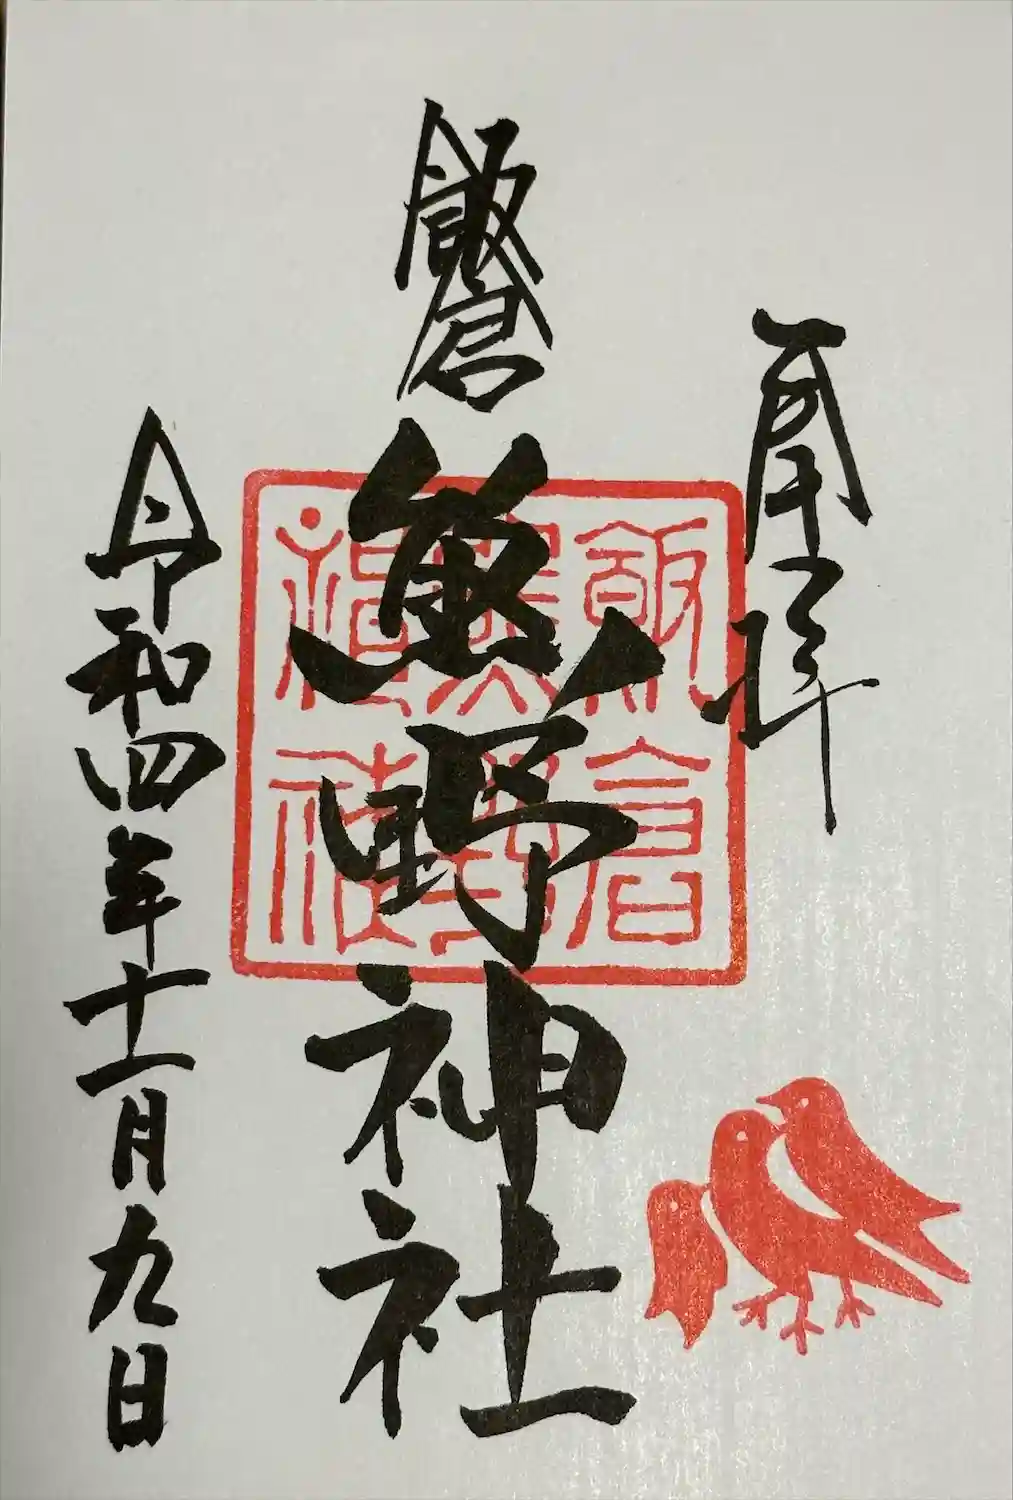 奉拝
飯倉
熊野神社
令和四年十一月九日
飯倉
熊野